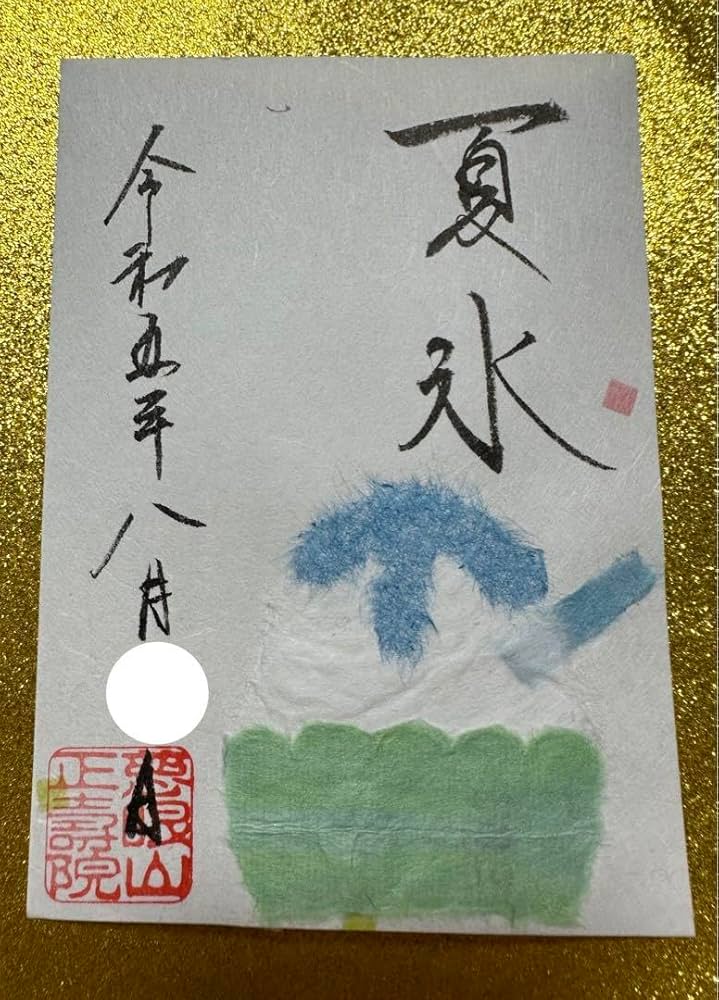 夏氷
令和五年八月
日
慈眼山
正寿院